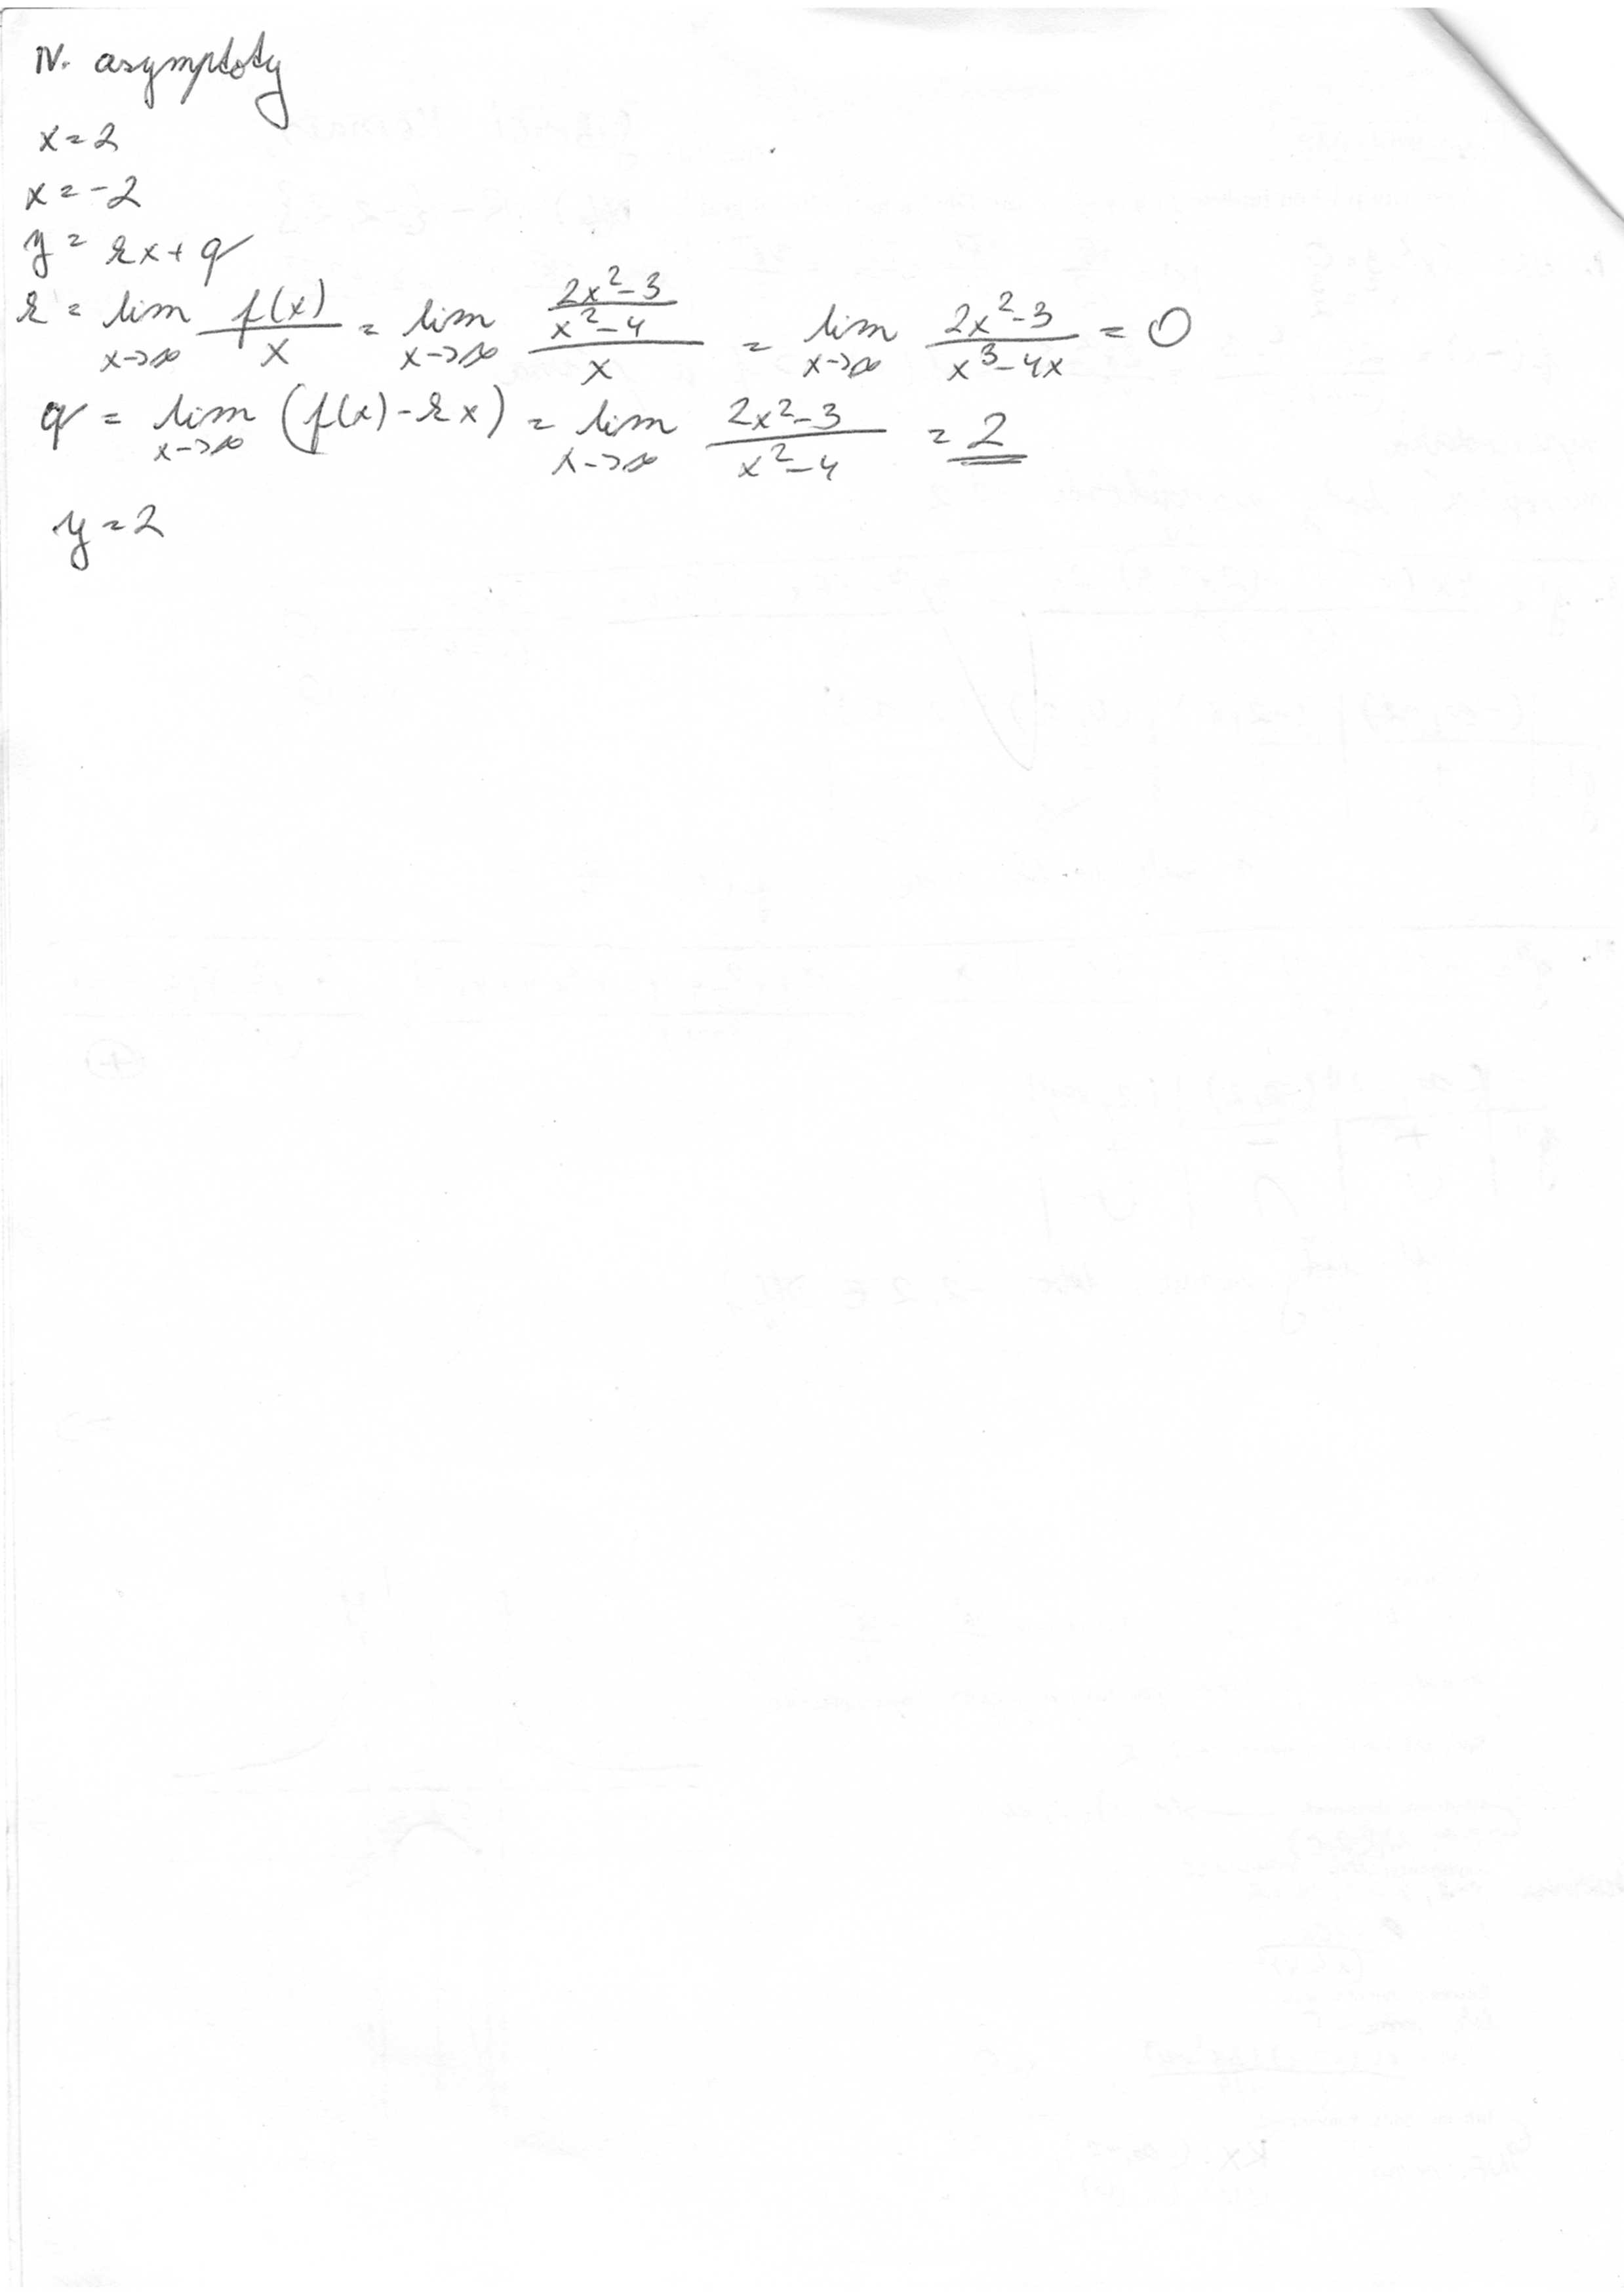 IV. asymptoty
x = 2
x = -2
y = kx + q
k = lim x->∞ f(x)/x = lim x->∞ ((2x²-3)/(x²-4))/x = lim x->∞ (2x²-3)/(x³-4x) = 0
q = lim x->∞ (f(x) - kx) = lim x->∞ (2x²-3)/(x²-4) = 2
y = 2